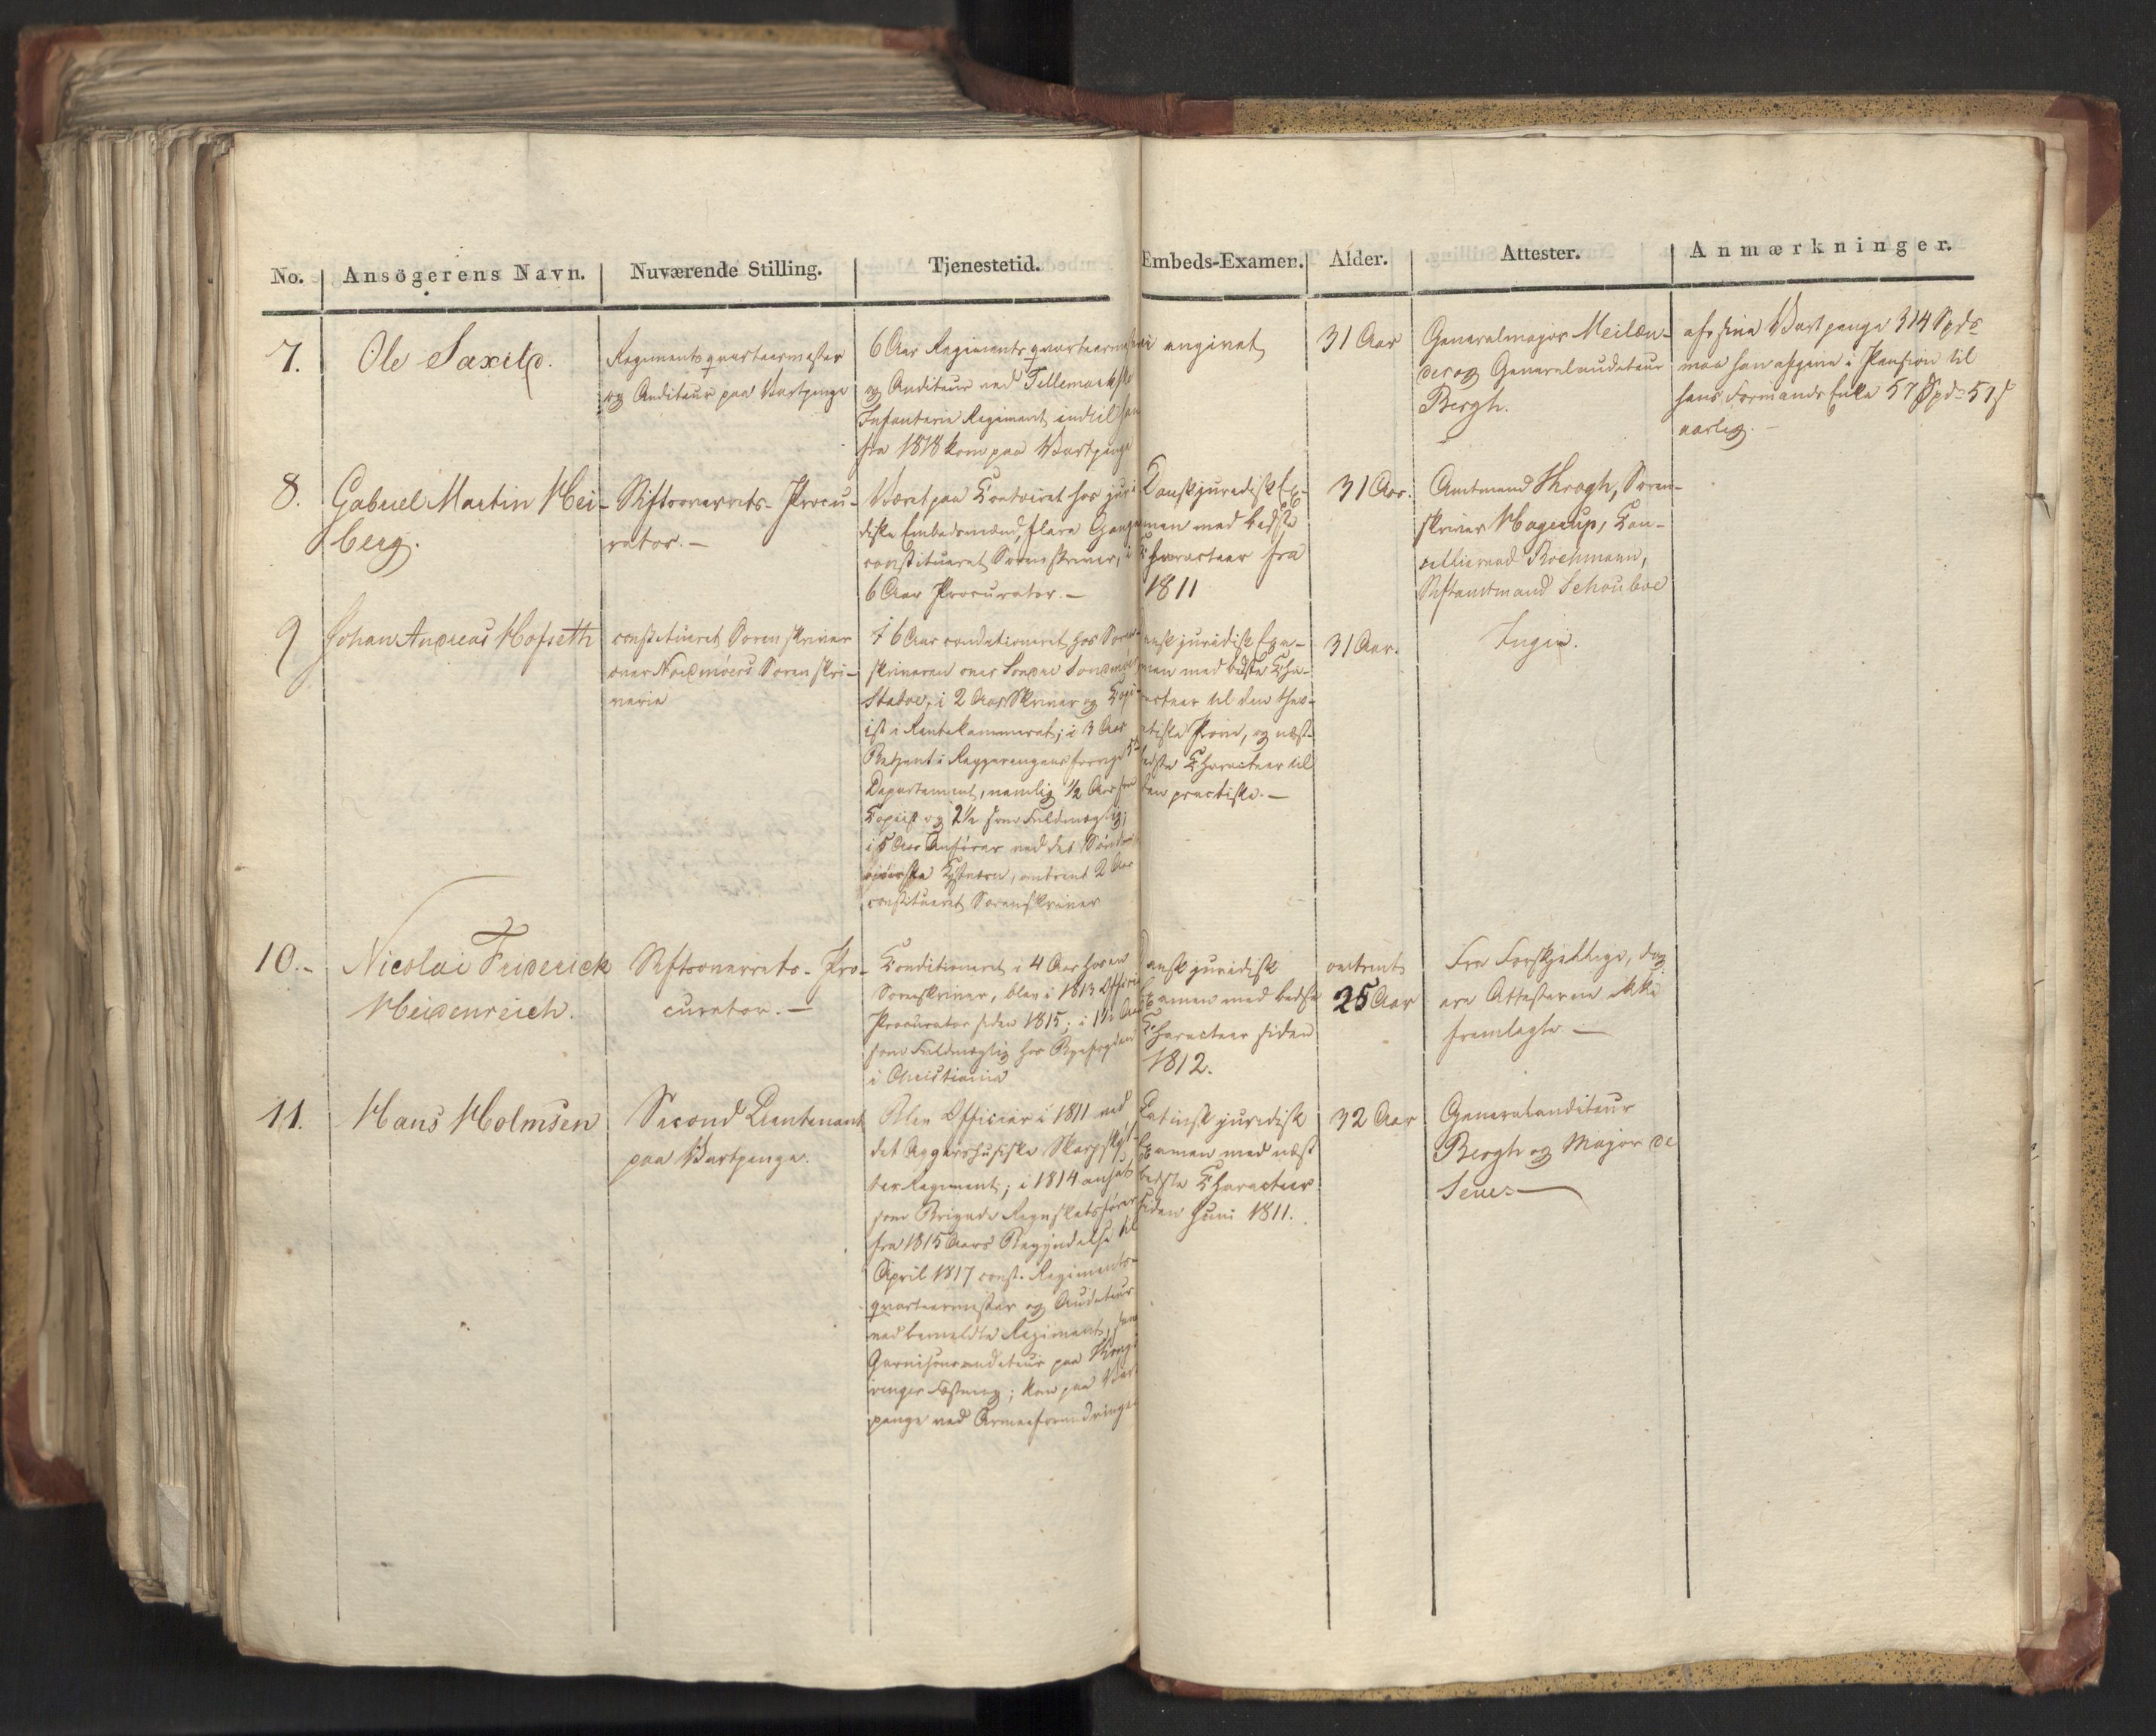 No. Ansögerens Navn. Nuværende Stilling. Tjenestetid. Embeds-Examen. Alder. Attester. Anmærkninger.
7.
Ole Saxild.
Regimentsqvarteermester
og Auditeur paa Vartpenge
6 Aar Regimentsqvarteermester
og Auditeur ved Tellemarkske
Infanterie Regiment indtil han
fra 1818 kom paa Vartpenge
ei angivet
31 Aar
Generalmajor Meilæn-
der og Generalauditeur
Bergh.
af sine Vartpenge 314 Spds
maa han afgive i Pension til
hans Formands Enke 57 Spd 57 s
aarlig.
8.
Gabriel Martin Hei-
berg.
Stiftsoverrets-Procu-
rator.
Været paa Contoiret hos juri-
diske Embedsmænd, flere Gange
constitueret Sorenskriver, i
6 Aar Procurator.
Danskjuridisk Ex-
amen med bedste
Characteer fra
1811
31 Aar.
Amtmand Krogh, Soren-
skriver Hagerup, Can-
cellieraad Rochmann,
Stiftamtmand Schouboe
9
Johan Andreas Hofseth
constitueret Sorenskriver
over Nordmöers Sorenskri-
verie
I 6 Aar conditioneret hos Soren-
skriveren over Söndre Söndmöer
Staboe; i 2 Aar Skriver og Copi-
ist i Rentekammeret; i 3 Aar
Betjent i Regjeringens forrige 5te
Departement, nemlig 1/2 Aar som
Copiist og 2 1/2 som Fuldmægtig;
i 5 Aar Anförer ved det Sönd-
möerske Kystværn, omtrent 2 Aar
constitueret Sorenskriver
Dansk juridisk Exa-
men med bedste Cha-
racteer til den theo-
retiske Pröve, og næst-
bedste Characteer til
den practiske.
31 Aar.
Ingen.
10.
Nicolai Friderick
Heidenreich.
Stiftsoverrets-Pro-
curator.
Conditioneret i 4 Aar hos en
Sorenskriver, blev i 1813
Procurator siden 1815; i 1 1/2 Aar
som Fuldmægtig hos Byefogden
i Christiania
Dansk juridisk
Examen med bedste
Characteer siden
1812.
omtrent
25 Aar
Fra Forskjellige, dog
ere Attesterne ikke
fremlagte.
11.
Hans Holmsen
Second Lieutenant
paa Vartpenge.
Blev Officier i 1811 ved
det Aggershusiske Skarpskyt-
ter Regiment; i 1814 ansat
som Brigade Regnskabsförer
fra 1815 Aars Begyndelse til
April 1817 const. Regiments-
qvarteermester og Auditeur
ved bemeldte Regiment, samt
Garnisonsauditeur paa Kongs-
vinger Fæstning; kom paa Vart-
penge ved Armeeforandringen
Latinsk juridisk
Examen med næst
bedste Characteer
siden Juni 1811.
32 Aar
Generalauditeur
Bergh og Major de
Seues